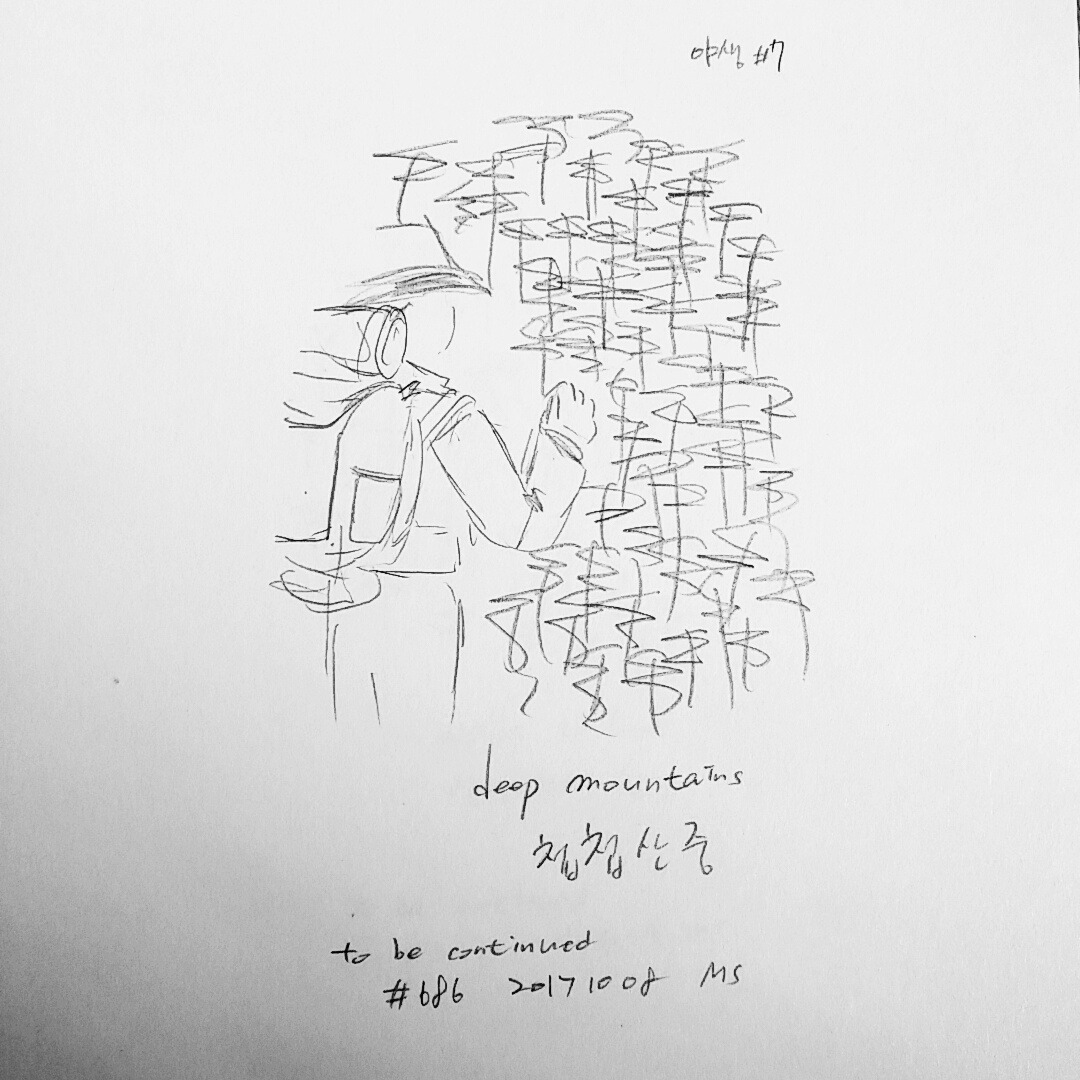 야생 #7
deep mountains
첩첩산중
to be continued
#686 20171008 MS